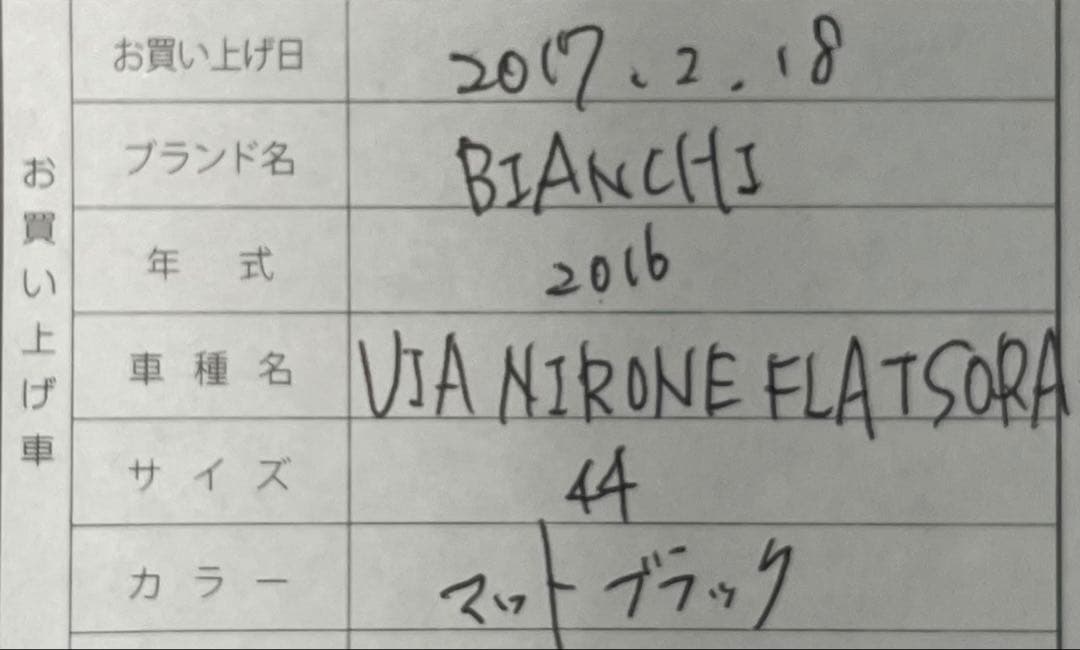 お買い上げ車
お買い上げ日 2017.2.18
ブランド名 BIANCHI
年式 2016
車種名 VIA NIRONE FLAT SORA
サイズ 44
カラー マットブラック